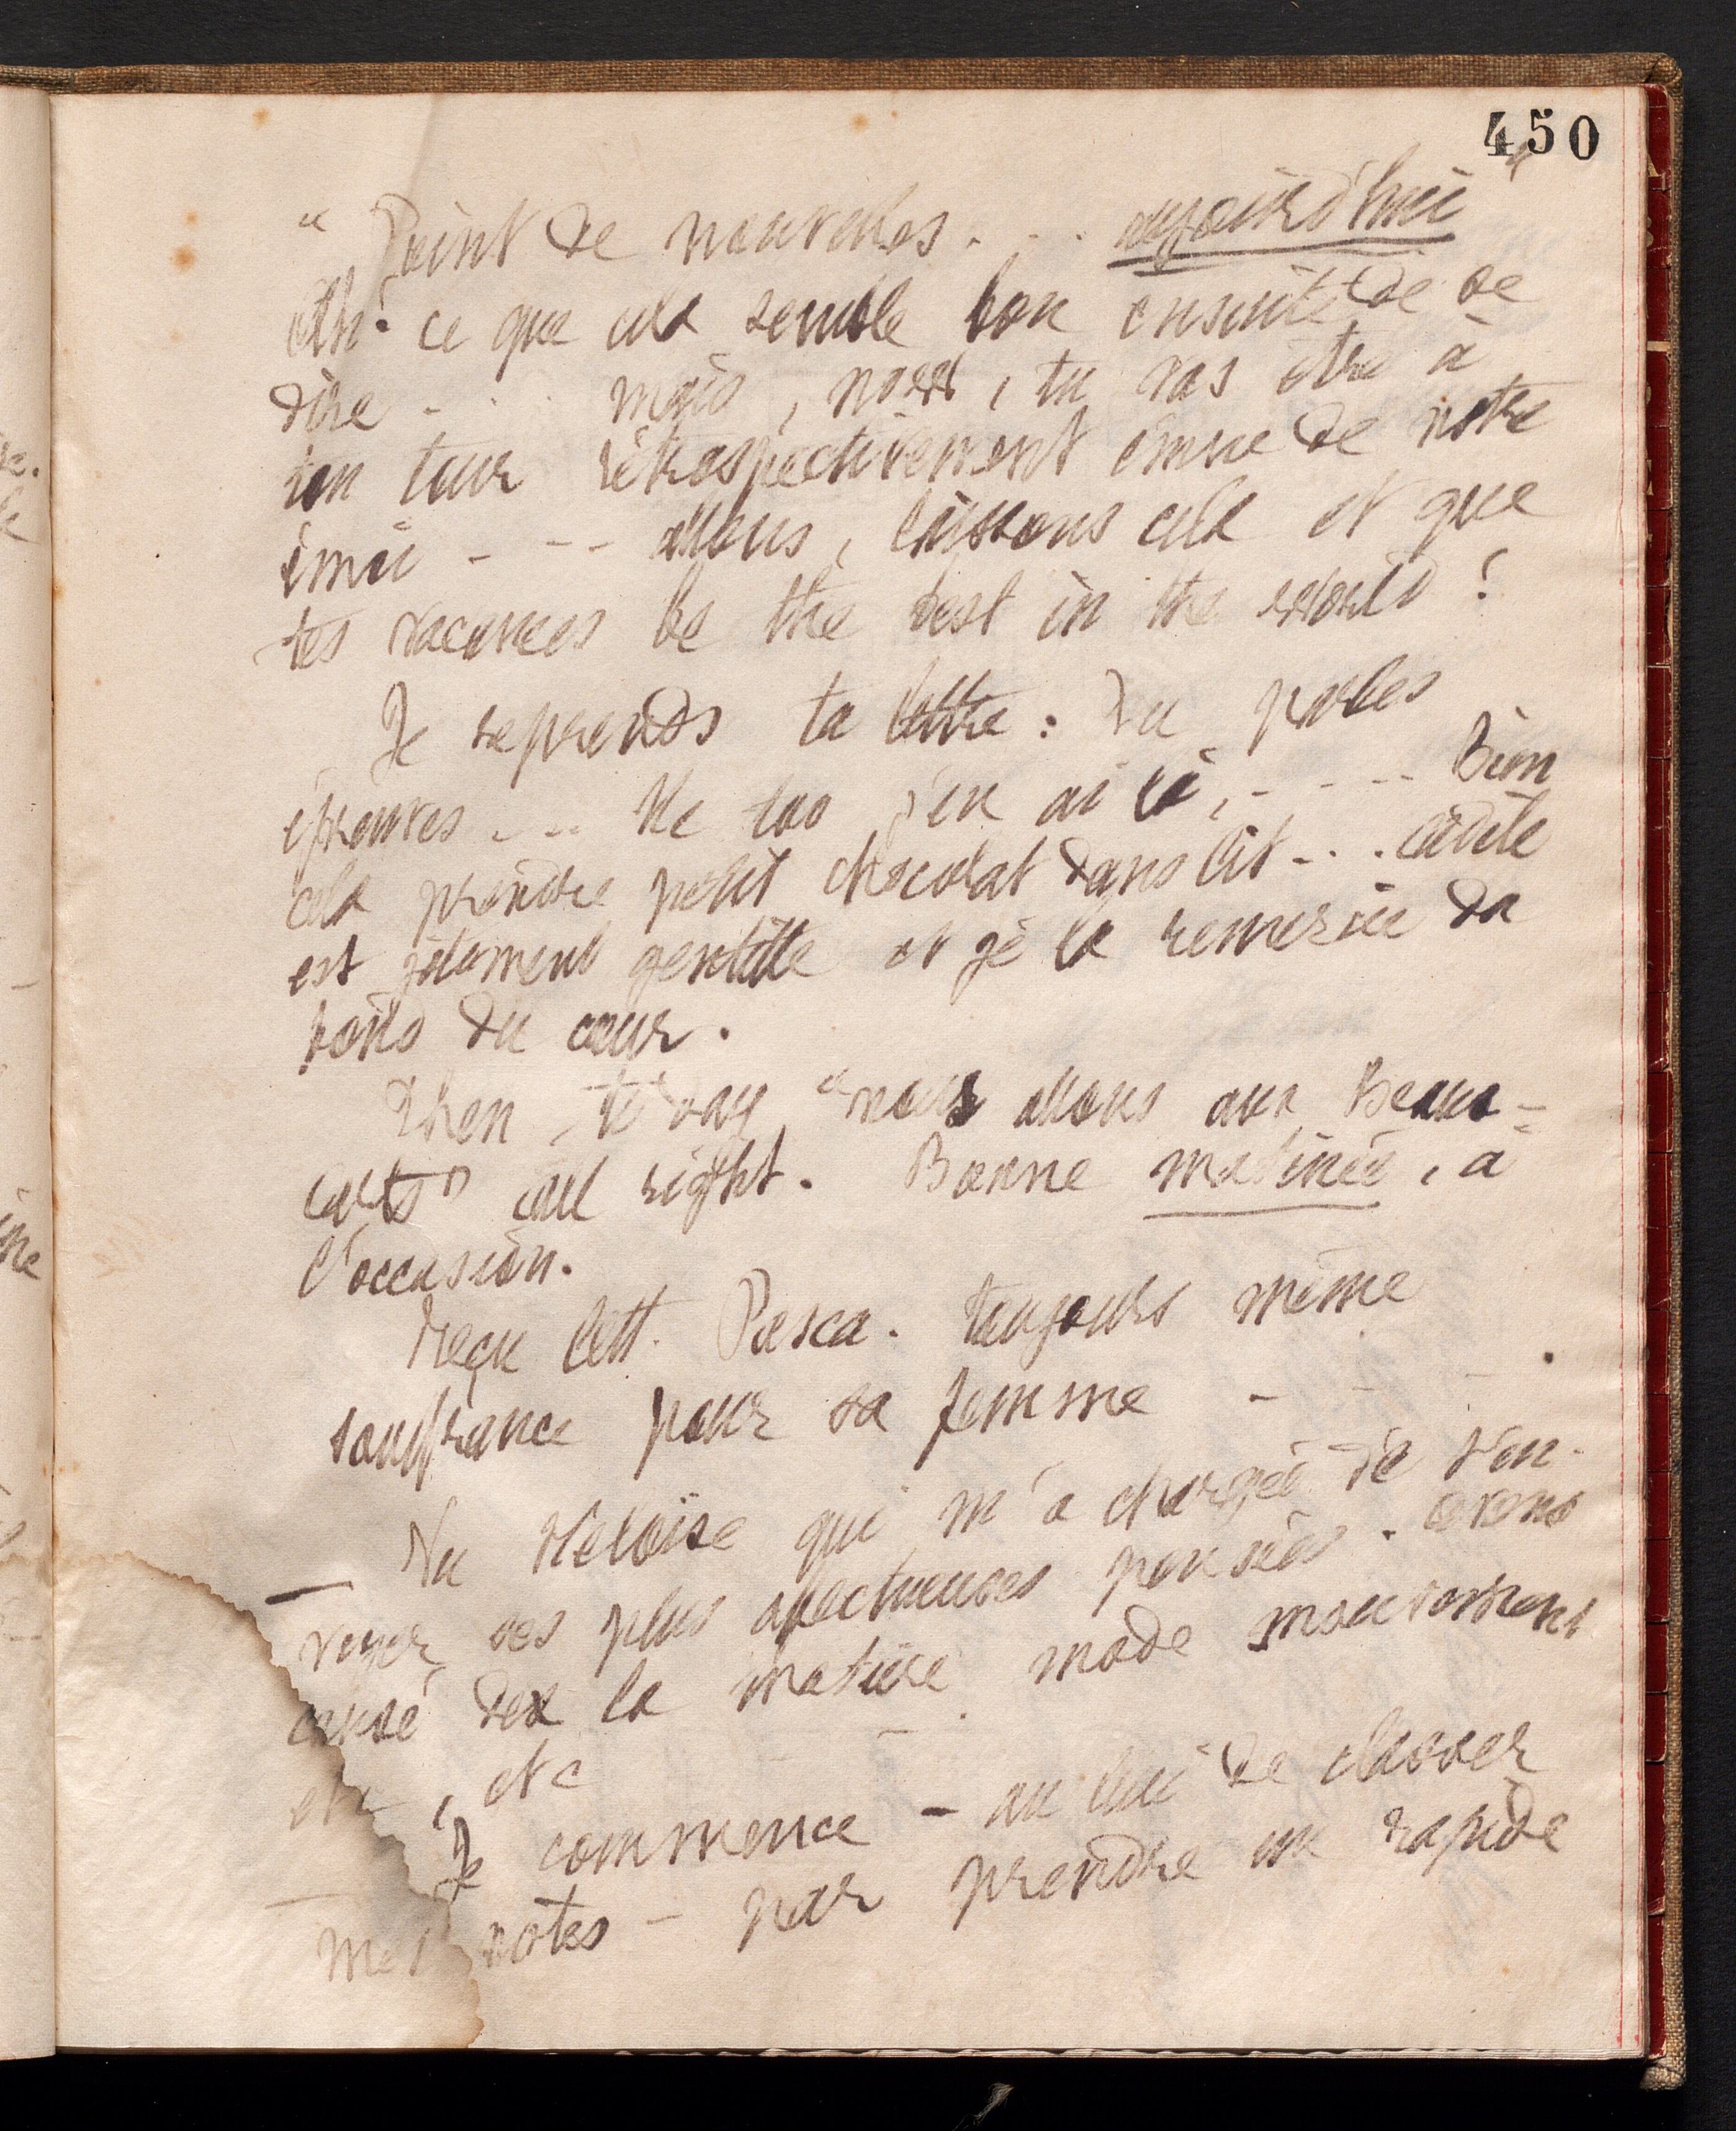 450
"Point de nouvelles... aujourd'hui"
Ah! ce que cela semble bon ensuite de se
dire ... mais, , tu vas être à
ton tour rétrospectivement émue de notre
émoi --- allons, laissons cela et que
tes vacances be the best in the world!
Je reprends ta lettre: Tu parles
épreuves ... Me too j'en ai là, ---- Bien
cela prendre petit chocolat dans lit... Adèle
est joliment gentille et je la remercie du
fons du cœur.
Then, to day "nous allons aux Beaux-
arts" all right. Bonne matinée, à
l'occasion.
Reçu lett. Pasca. toujours même
souffrance pour sa femme - - - .
Vu Héloïse qui m'a chargée de t'en-
voyer ses plus affectueuses pensées. avons
causé de la matière mode
etc, etc - - - .
Je commence - au lieu de classer
mes notes - par prendre un rapide